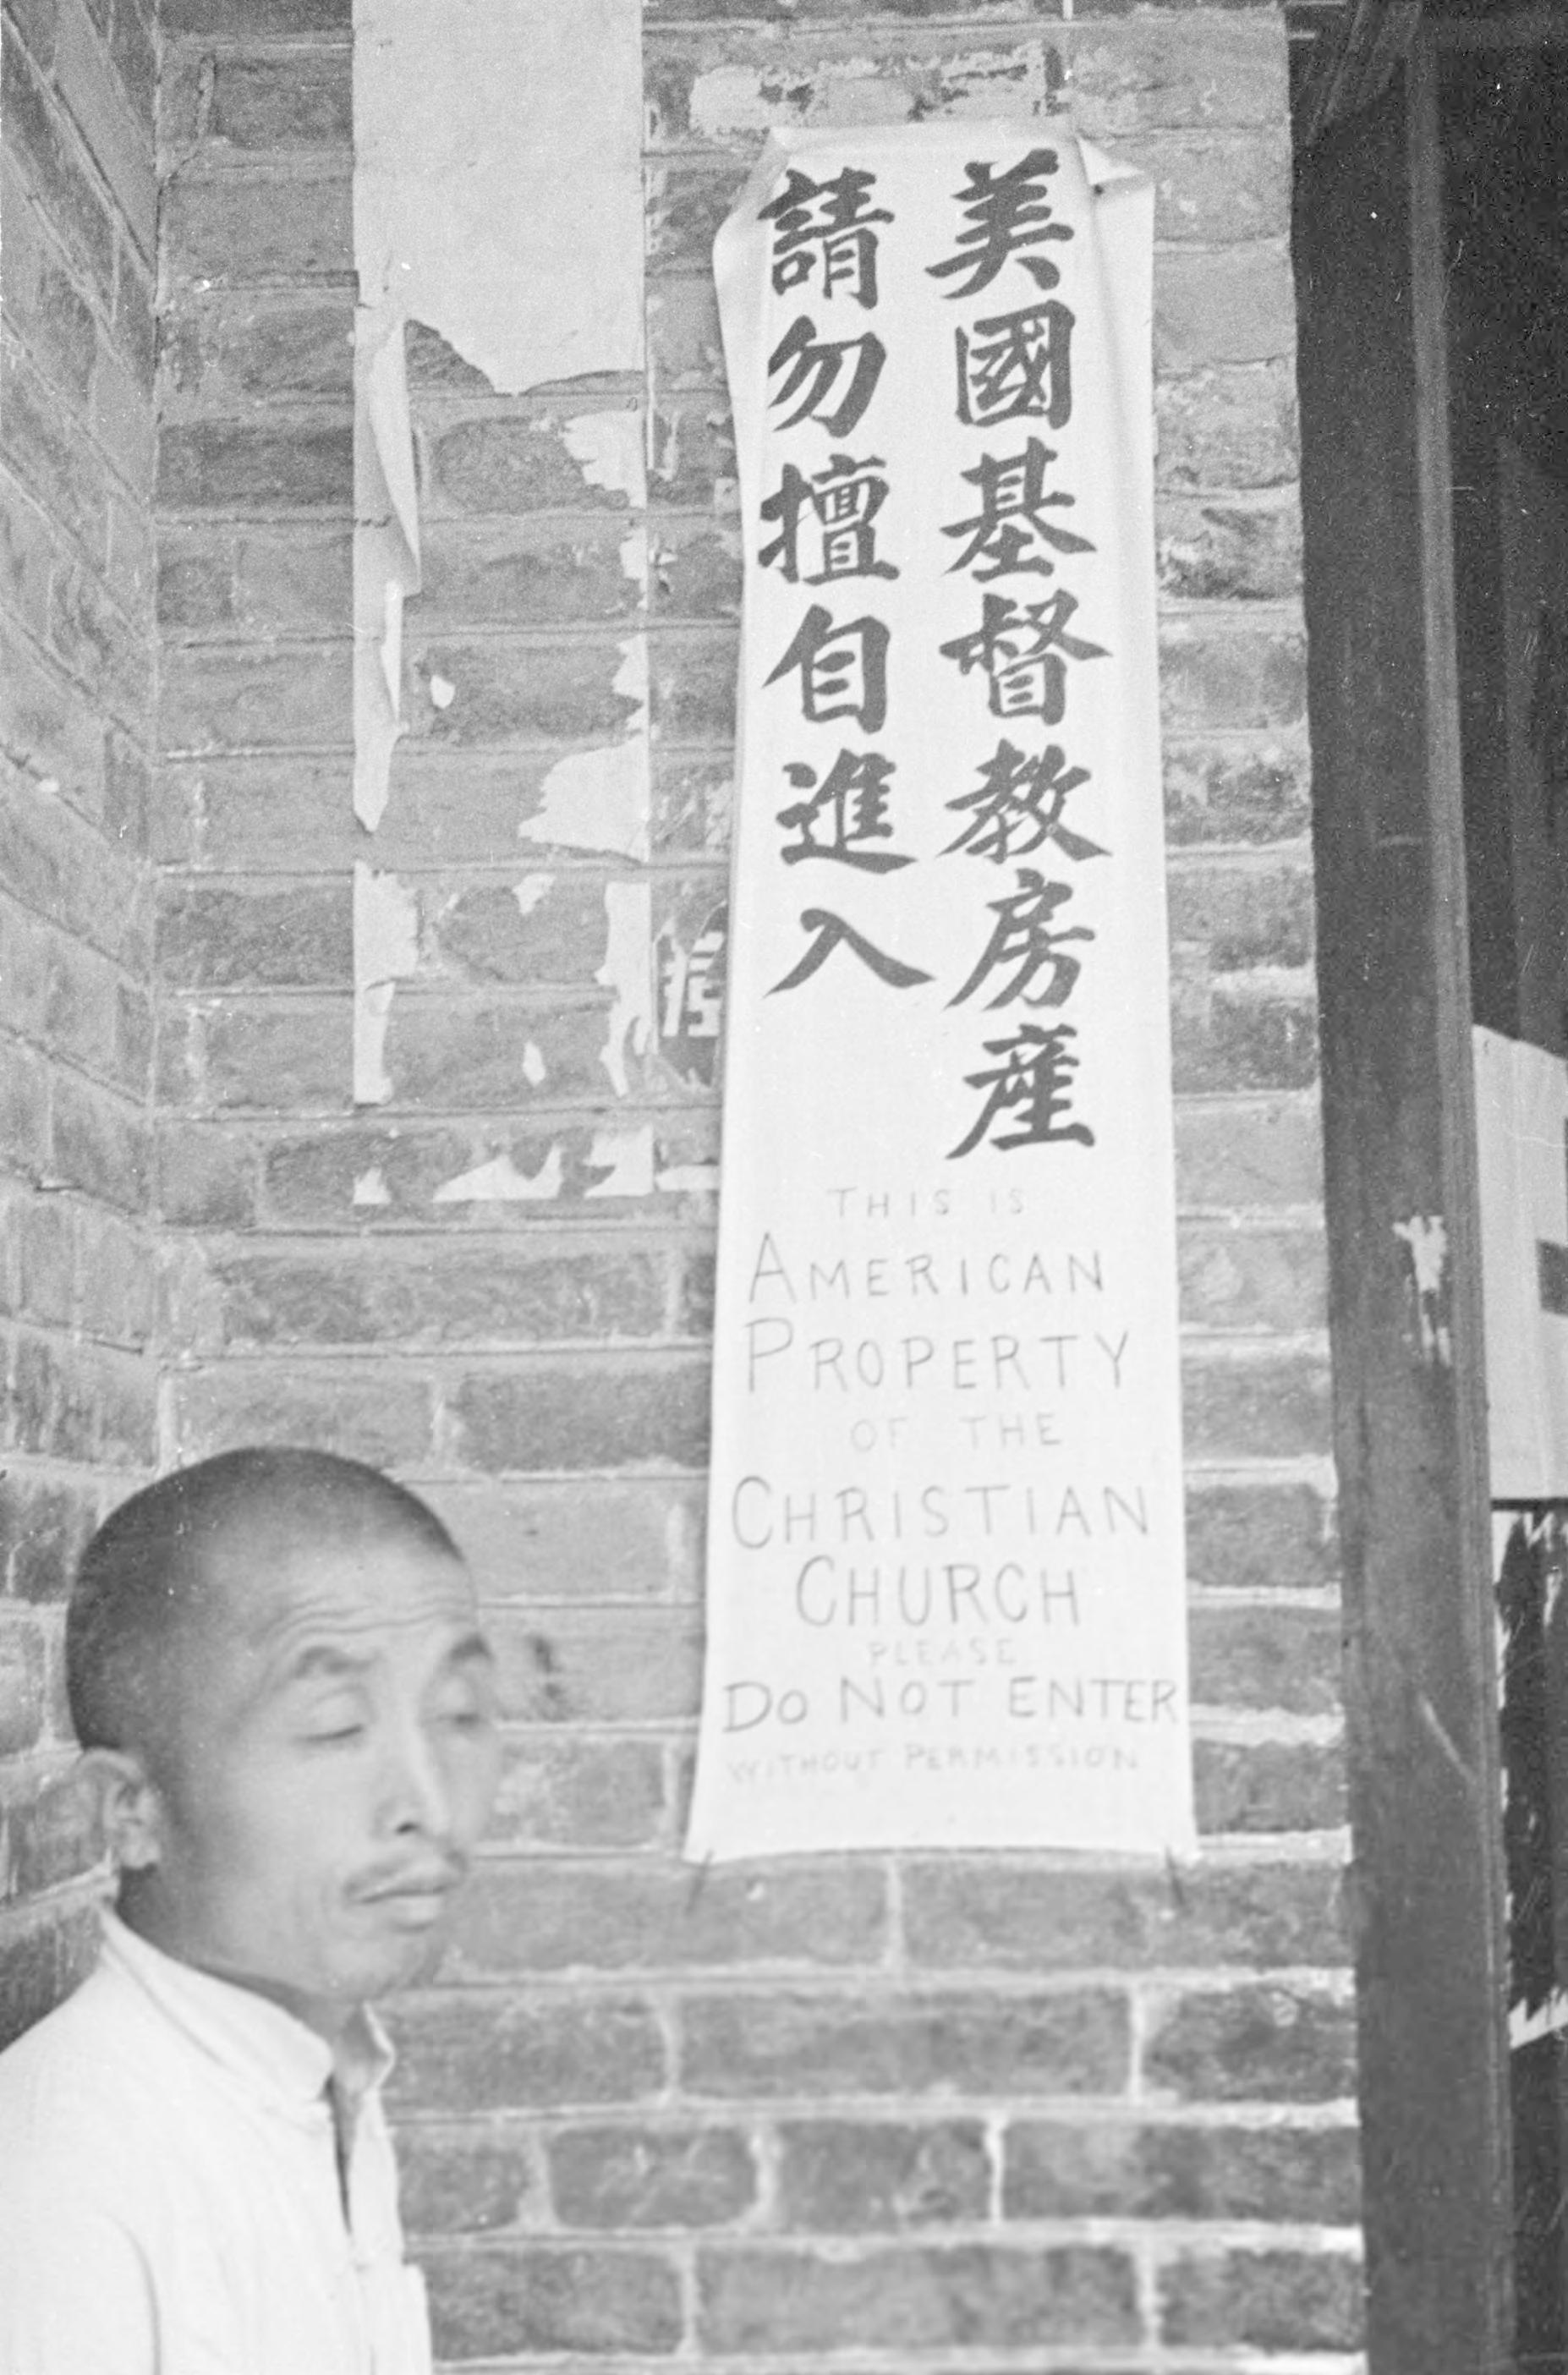 美國基督教房產
請勿擅自進入
THIS IS
AMERICAN
PROPERTY
OF THE
CHRISTIAN
CHURCH
PLEASE
DO NOT ENTER
WITHOUT PERMISSION